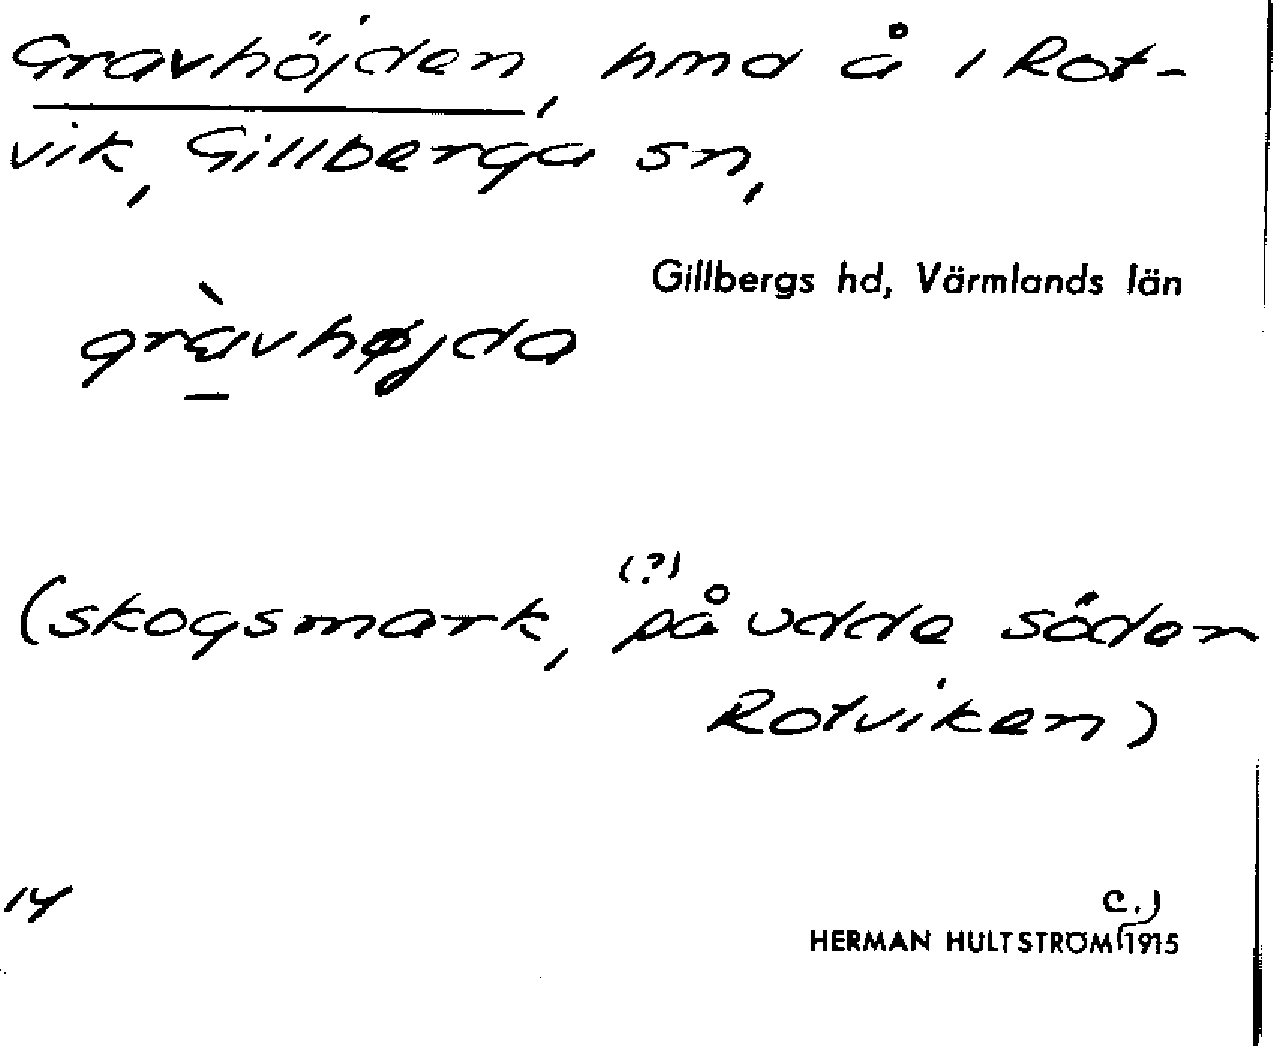 Gravhöjden, hmd å i Rot-
vik, Gillberga sn,
Gillbergs hd, Värmlands län
gràvhøjda
(?)
(skogsmark, på udde söder
Rotviken)
14
c.)
HERMAN HULTSTRÖM 1915